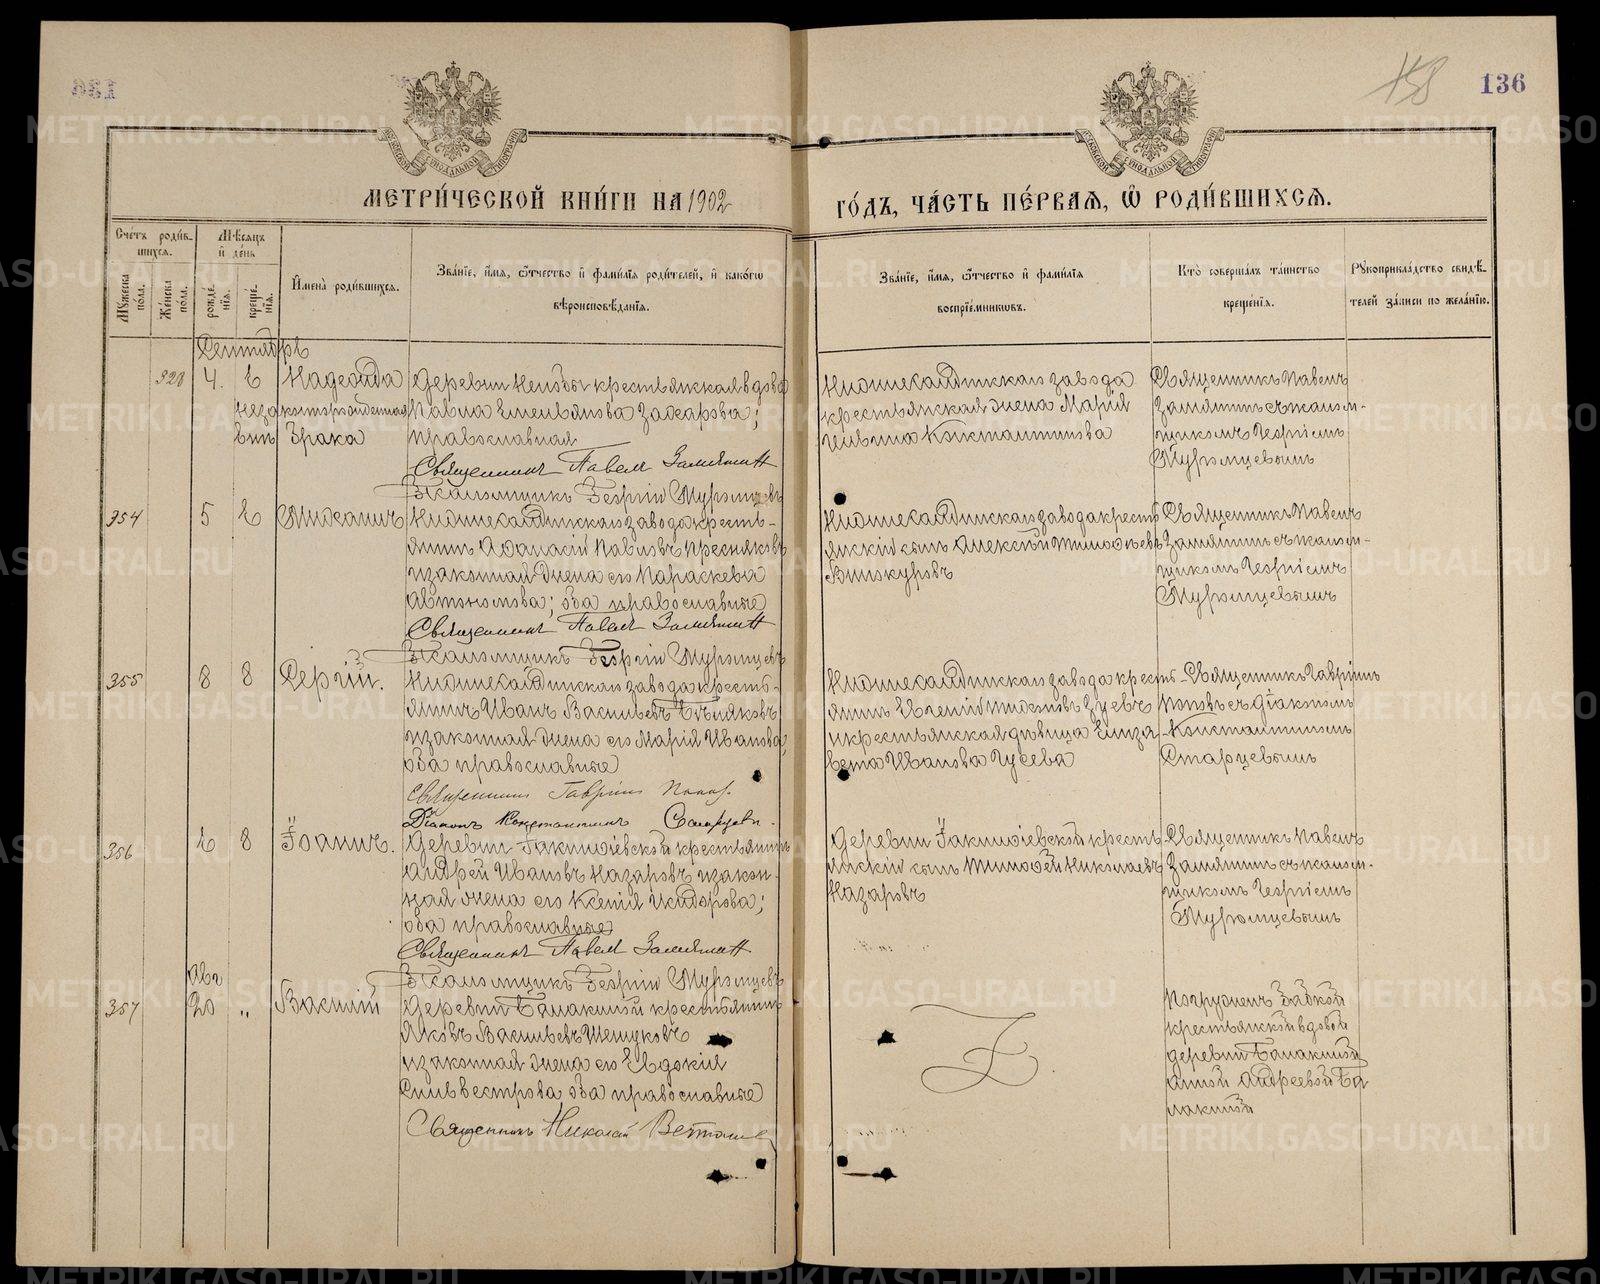 136
158
МЕТРИ́ЧЕСКОЙ КНИ́ГИ НА 1902
ГО́ДЪ, ЧА́СТЬ ПЕ́РВАЯ, Ѡ҆ РОДИ́ВШИХСЯ.
Сче́тъ роди́в-
шихся.
Мꙋжеска по́ла.
Же́нска по́ла.
Мѣ́сяцъ и҆ де́нь
рожде́нїя.
креще́нїя.
И҆мена̀ роди́вшихся.
Зва́нїе, и҆́мя, ѻ҆́тчество и҆ фами́лїя роди́телей, и҆ како́гѡ
вѣроисповѣ́данїя.
Зва́нїе, и҆́мя, ѻ҆́тчество и҆ фами́лїя
воспрїе́мникѡвъ.
Кто̀ соверша́лъ та́инство
креще́нїя.
Рꙋкоприкла́дство свидѣ́-
телей за́писи по жела́нїю.
Сентябрь
328 4. 6 Надежда
незаконнорожденная
Зрака
Деревни крестьянская вдова
Павла Емельянова Захарова;
православная
Священникъ Павелъ Замятинъ
Псаломщикъ Георгій Муромцевъ
Нижнесалдинскаго завода
крестьянская жена Марія
Константинова
Священникъ Павелъ
Замятинъ съ псалом-
щикомъ Георгіемъ
Муромцевымъ
354 5 6 Михаилъ
Нижнесалдинскаго завода кресть-
янинъ Афанасій Павловъ Пресняковъ
и законная жена его Параскева
Автономова; оба православные
Священникъ Павелъ Замятинъ
Псаломщикъ Георгій Муромцевъ
Нижнесалдинскаго завода кресть
янскій сынъ Алексѣй Тимофѣевъ
Винокуровъ
Священникъ Павелъ
Замятинъ съ псалом-
щикомъ Георгіемъ
Муромцевымъ
355 8 8 Сергій.
Нижнесалдинскаго завода кресть-
янинъ Иванъ Васильевъ
и законная жена его Марія Иванова,
оба православные
Священникъ Гавріилъ Поповъ.
Діаконъ Константинъ Старцевъ.
Нижнесалдинскаго завода кресть-
янинъ Евгеній Зуевъ
и крестьянская дѣвица Елиза-
вета Иванова Гусева
Священникъ Гавріилъ
Поповъ съ діакономъ
Константиномъ
Старцевымъ
356 6 8 Іоаннъ.
Деревни Іакимовской крестьянинъ
Андрей Ивановъ Назаровъ и закон-
ная жена его Ксенія Исидорова;
оба православные
Священникъ Павелъ Замятинъ
Псаломщикъ Георгій Муромцевъ
Деревни Іакимовской кресть
янскій сынъ Тимофей Николаевъ
Назаровъ
Священникъ Павелъ
Замятинъ съ псалом-
щикомъ Георгіемъ
Муромцевымъ
Авг
357 20 „ Василій
Деревни Балакиной крестьянинъ
Яковъ Васильевъ Шешуковъ
и законная жена его Евдокія
Сильвестрова, оба православные
Священникъ Николай
Погруженъ бабкой
крестьянской вдовой
деревни Балакиной
Анной Андреевой Ба
лакиной
METRIKI.GASO-URAL.RU